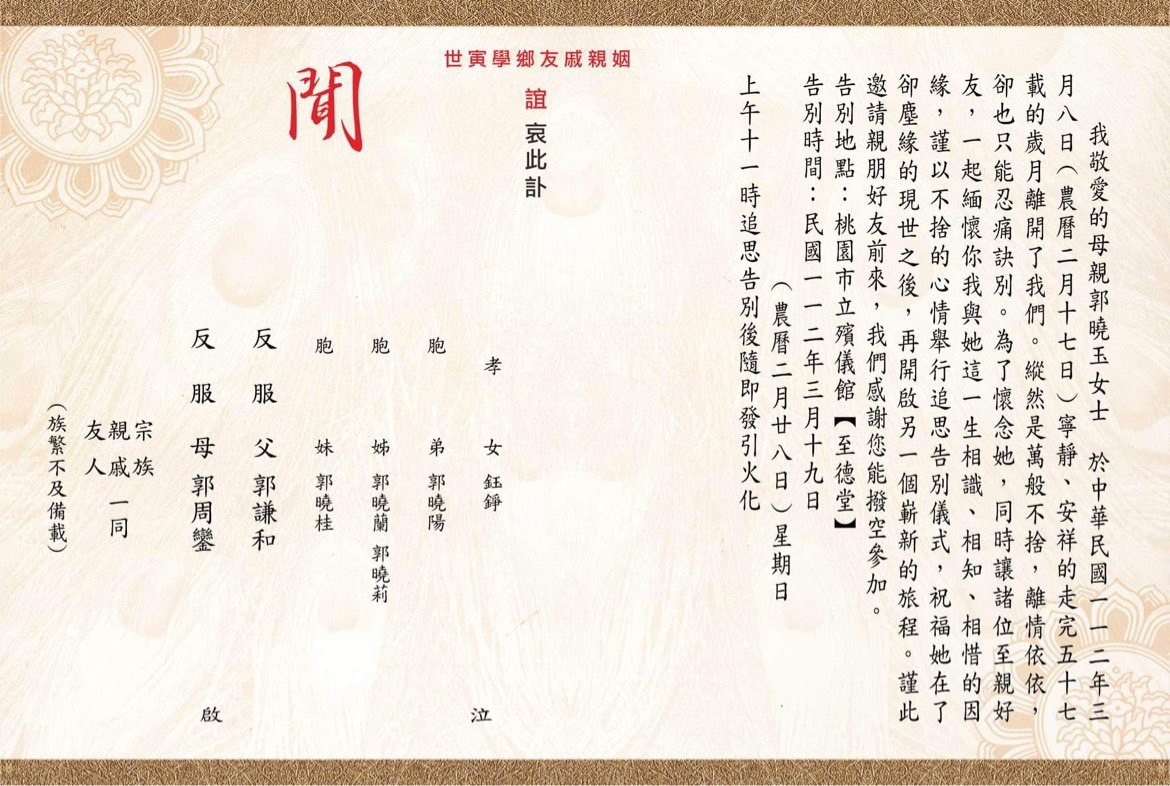 我敬愛的母親郭曉玉女士 於中華民國一一二年三
月八日（農曆二月十七日）寧靜、安祥的走完五十七
載的歲月離開了我們。縱然是萬般不捨，離情依依，
卻也只能忍痛訣別。為了懷念她，同時讓諸位至親好
友，一起緬懷你我與她這一生相識、相知、相惜的因
緣，謹以不捨的心情舉行追思告別儀式，祝福她在了
卻塵緣的現世之後，再開啟另一個嶄新的旅程。謹此
邀請親朋好友前來，我們感謝您能撥空參加。
告別地點：桃園市立殯儀館【至德堂】
告別時間：民國一一二年三月十九日
（農曆二月廿八日）星期日
上午十一時追思告別後隨即發引火化
姻親戚友鄉學寅世
誼 哀此訃
聞
孝 女 鈺錚 泣
胞 弟 郭曉陽
胞 姊 郭曉蘭 郭曉莉
胞 妹 郭曉桂
反服父 郭謙和
反服母 郭周鑾 啟
宗族
親戚一同
友人
（族繁不及備載）